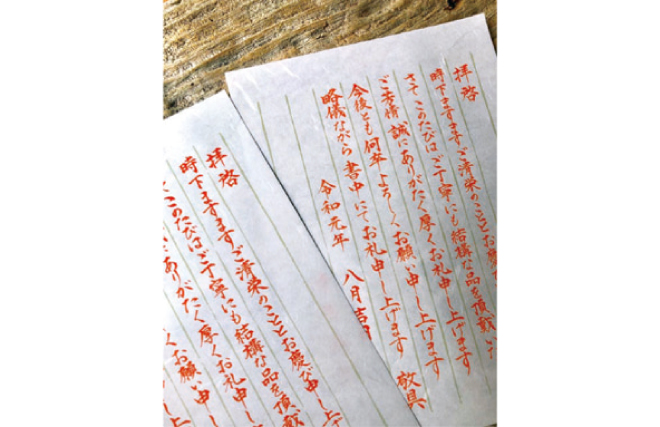 拝啓
時下ますますご清栄のこととお慶
さて このたびはご丁寧にも結構な品を頂戴いた
ご芳情 誠にありがたく厚くお礼申し上げます
今後とも何卒よろしくお願い申し上げます
略儀ながら 書中にてお礼申し上げます 敬具
令和元年 八月吉
拝啓
時下ますますご清栄のこととお慶び申し上
このたびはご丁寧にも結構な品を頂戴
ありがたく厚くお礼申し
くお願い申し
申し上